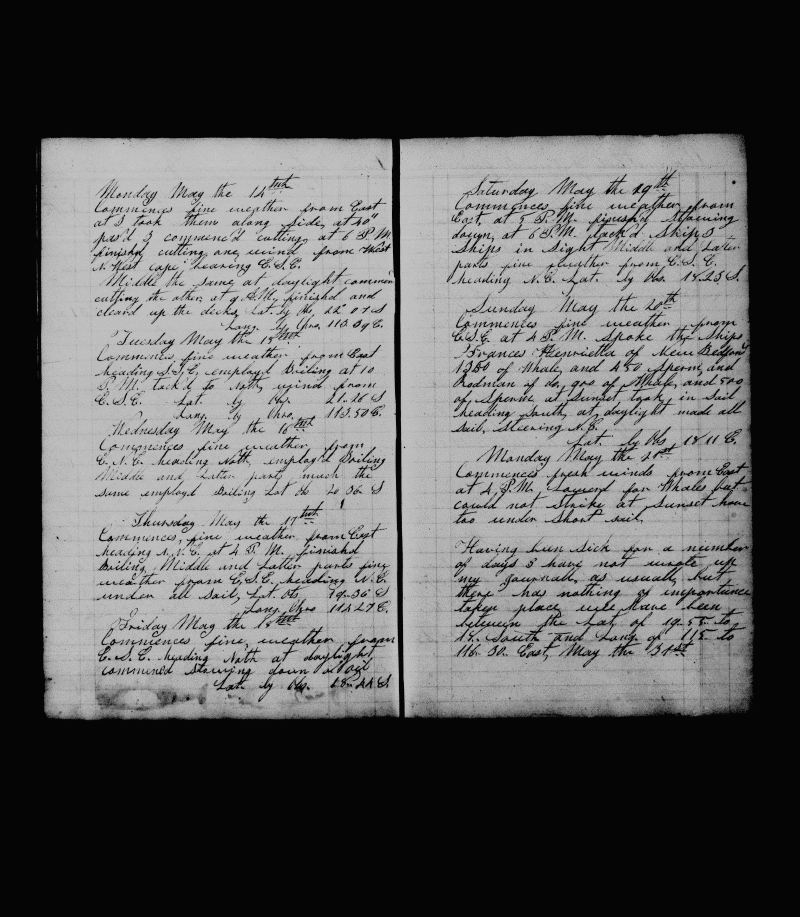 Monday May the 14th
Commences fine weather from East
at 3 took them along side, at 40m
pas'd 3 commenc'd cutting, at 6 P.M.
finishd cutting one, wind from West
N. West cape, bearing E.S.E.
Middle the same at daylight commen
cutting the other, at 9 A.M. finishd and
cleard up the decks, Lat. by Obs, 22" 07 S
Long. by Chro, 113.39 E.
Tuesday May the 15th
Commences fine weather, from East
heading S.S.E, employd Boiling at 10
P.M. tack'd to North, wind from
E.S.E. Lat. by Obs. 21.26 S
Long. by Chro. 113.50 E.
Wednesday May the 16th
Commences fine weather, from
E.N.E. heading Noth, employ'd Boiling
Middle and Latter parts much the
same employd Boiling Lat Obs 20 36 S
Thursday May the 17th
Commences, fine weather, from East
heading N.N.E. at 4 P.M. finishd
Boiling, Middle and Latter parts fine
weather from E.S.E. heading N.E.
under all sail, Lat. Obs. 19-36 S
Long, Chro 114 27 E.
Friday May the 18th
Commences fine, weather, from
E.S.E. heading Noth at daylight
commencd Stowing down Oil
Lat. by Obs. 18-44 S.
Saturday May the 19th
Commences fine weather, from
East, at 5 P.M. finish'd Stowing
down, at 6 P.M. tack'd Ship 3
Ships in Sight Middle and Later
parts fine weather from E.S.E.
heading N.E. Lat. by Obs. 18.25 S.
Sunday May the 20th
Commences fine weather from
E.S.E. at 4 P.M. Spoke the Ships
Frances Henrietta of New Bedford
1350 of Whale, and 450 Sperm, and
Rodman of do, 900 of Whale, and 500
of Sperm at Sunset, took in Sail
heading South, at, daylight made all
Sail, Steering N.E.
Lat. by Obs, 18 11 E.
Monday May the 21st
Commences fresh winds from East
at 4, P.M. Lowerd for Whales but
could not Strike at Sunset hove
too under Short sail.
Having bun Sick for a number
of days I have not wrote up
my Journall, as usuall, but
there has nothing of importance
taken place, we have been
between the Lat, of 19-55 to
18. South and Long. of 115 to
116-30. East, May the 31st